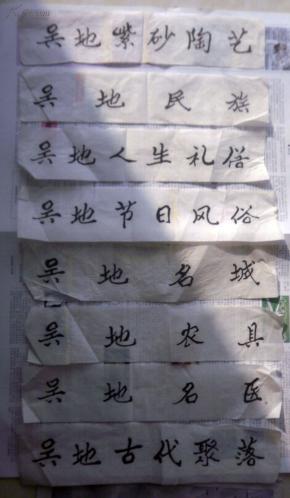 吴地紫砂陶艺
吴地民族
吴地人生礼俗
吴地节日风俗
吴地名城
吴地农具
吴地名医
吴地古代聚落